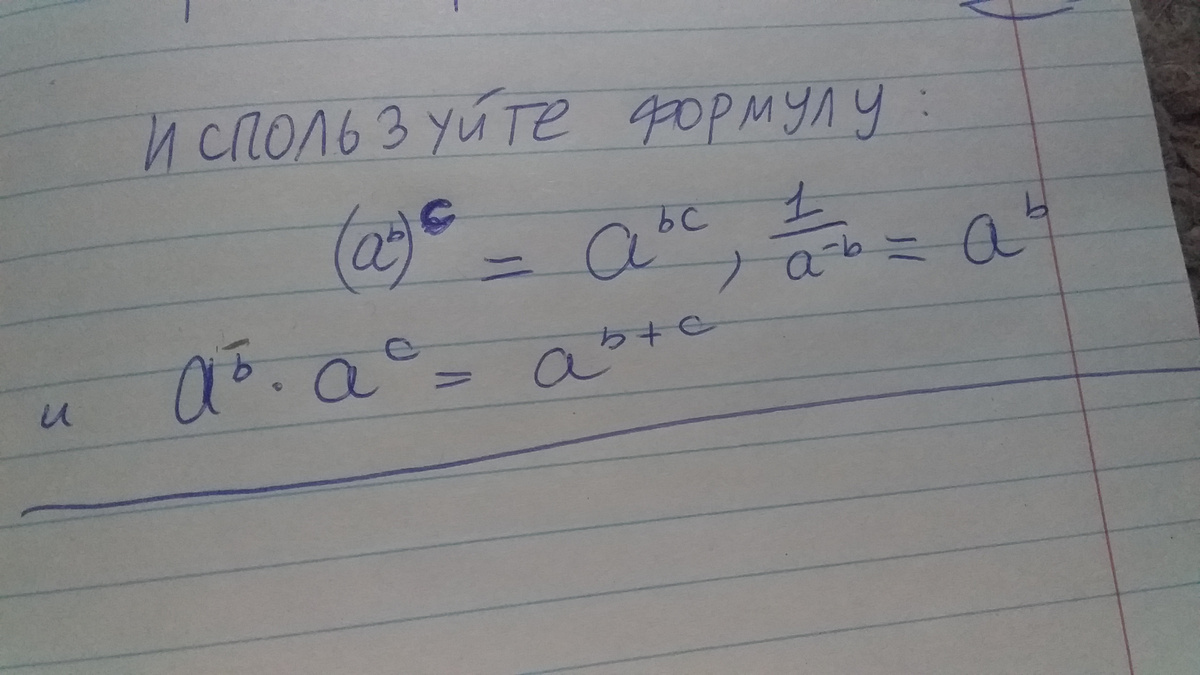 используйте формулу:
(a^b)^c = a^{bc}, \frac{1}{a^{-b}} = a^b
и a^b · a^c = a^{b+c}